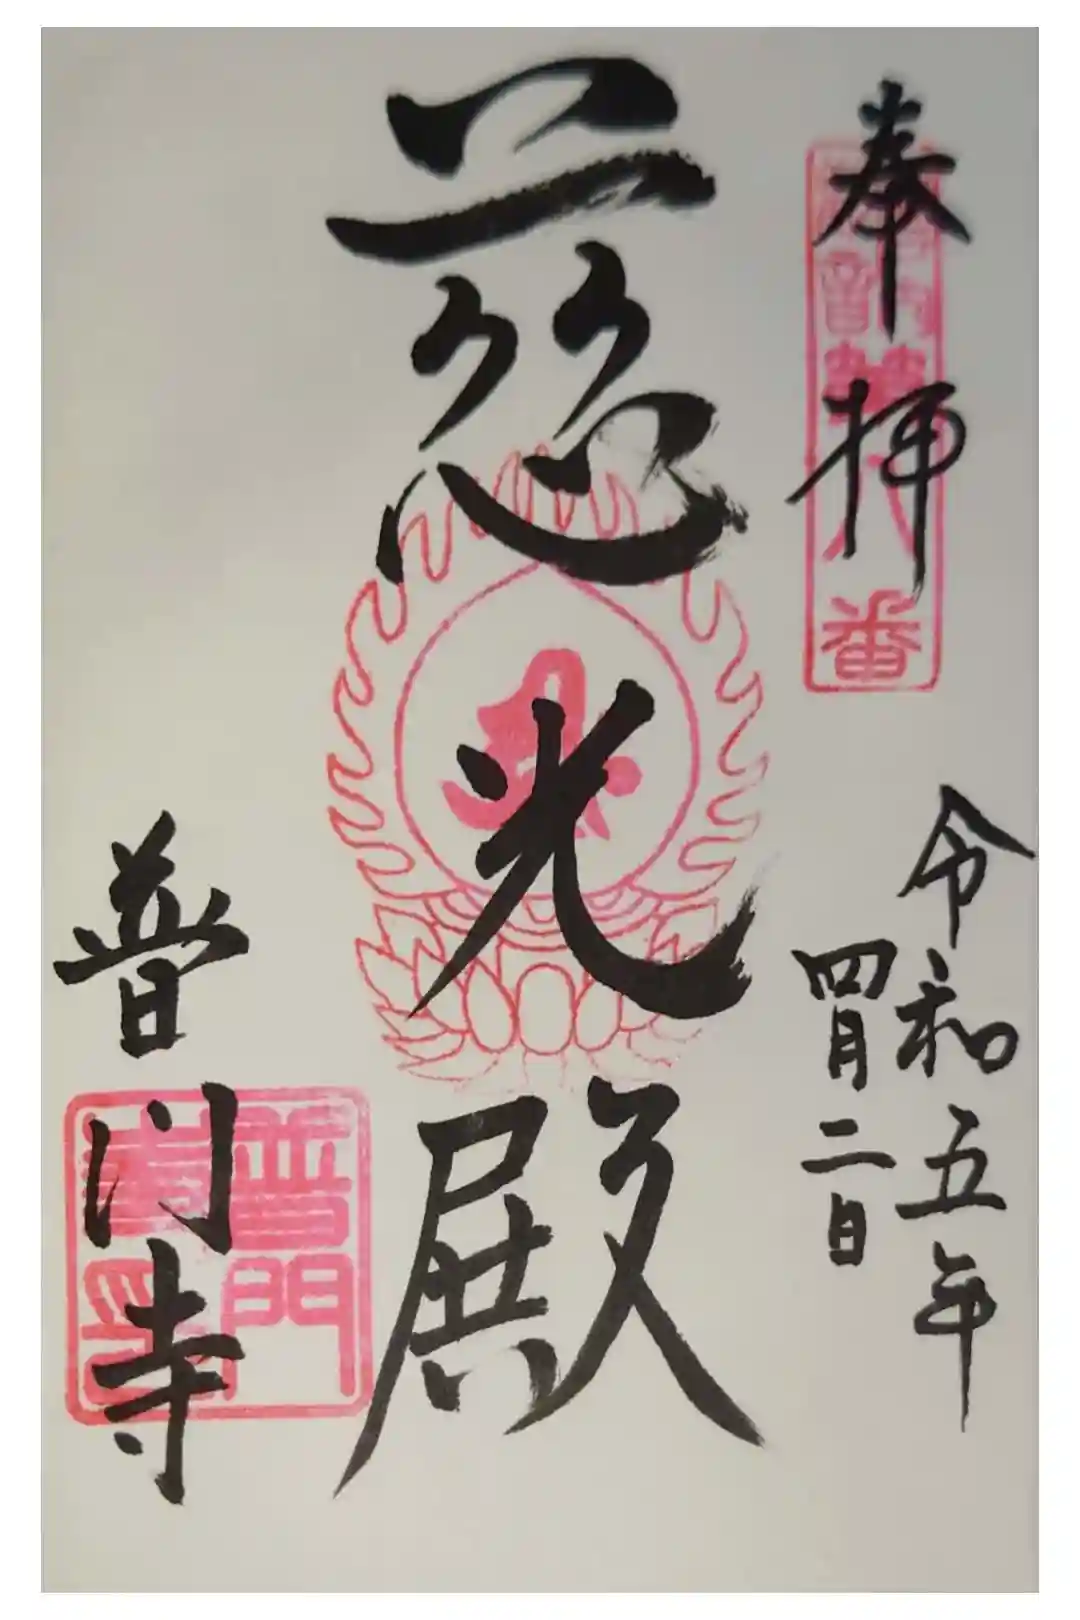 奉拝
令和五年
四月二日
慈光殿
普门寺
番
普門